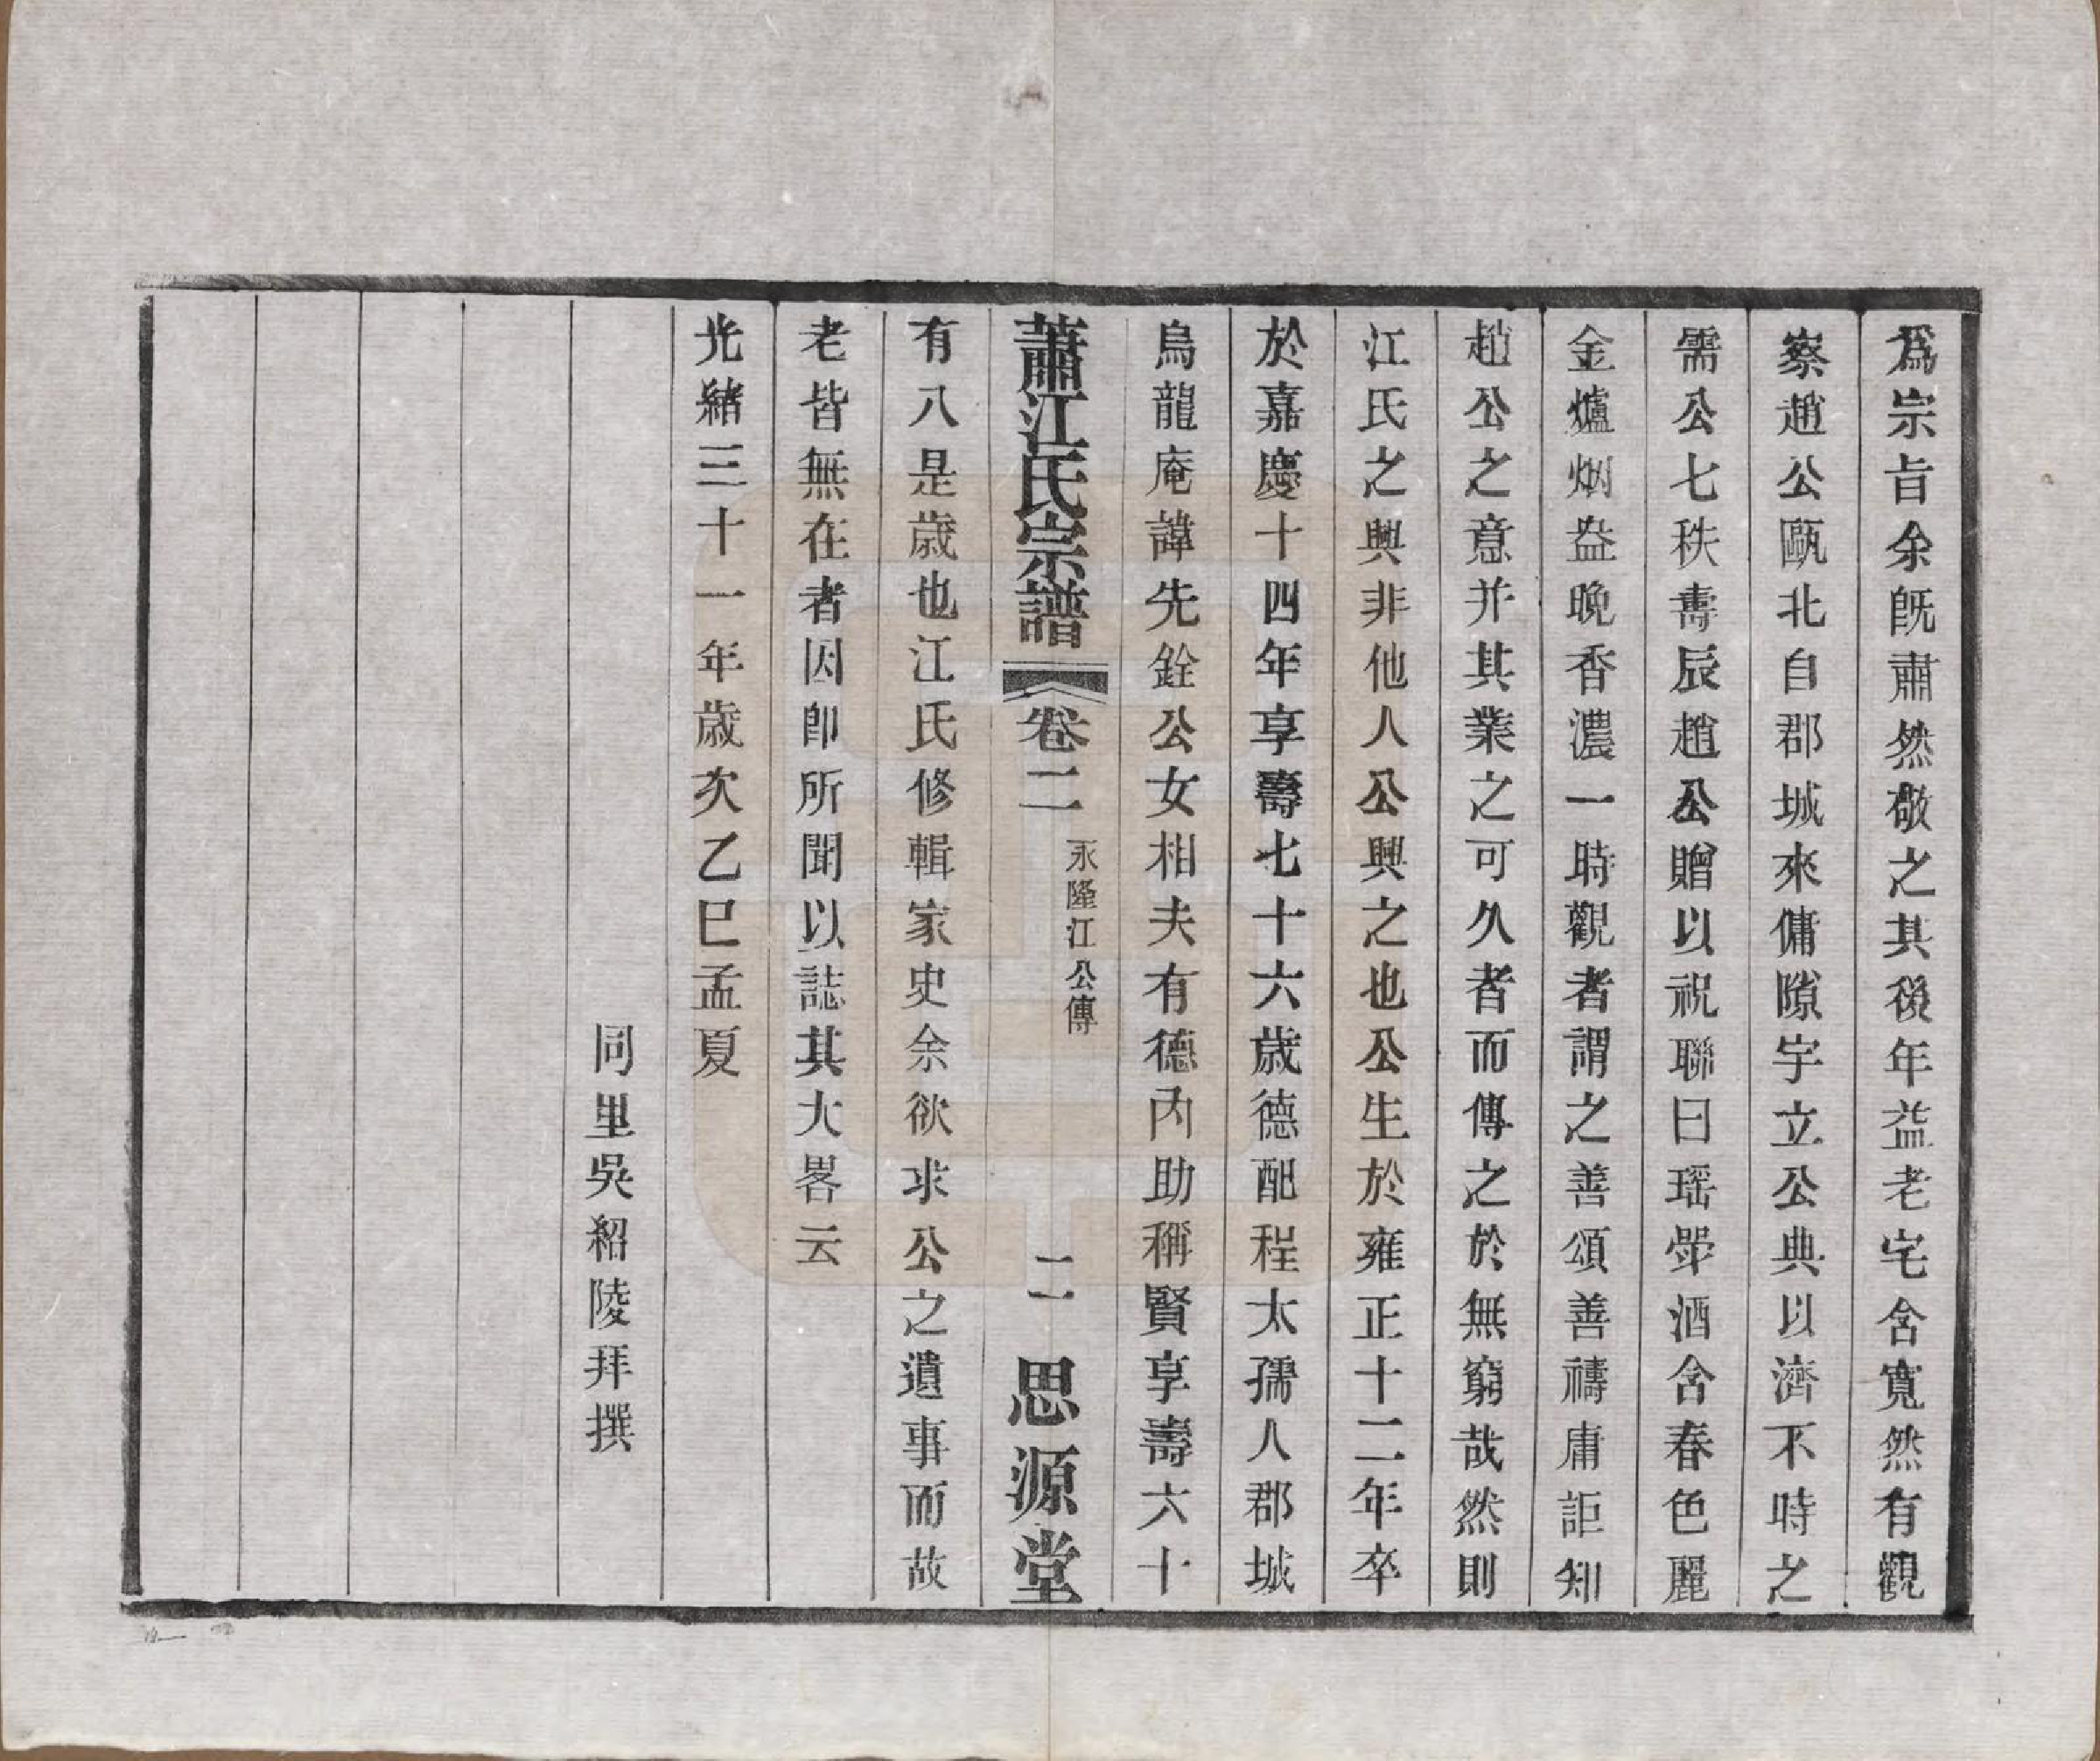 爲宗旨余旣肅然敬之其後年益老宅含寬然有觀
察趙公甌北自郡城來傭隙宇立公典以濟不時之
需公七秩壽辰趙公贈以祝聯曰瑶斝酒含春色麗
金爐烟益晚香濃一時觀者謂之善頌善禱庸詎知
趙公之意并其業之可久者而傳之於無窮哉然則
江氏之興非他人公興之也公生於雍正十二年卒
於嘉慶十四年享壽七十六歲德配程太孺人郡城
烏龍庵諱先銓公女相夫有德內助稱賢享壽六十
蕭江氏宗譜 卷二 永隆江公傳 二 思源堂
有八是歲也江氏修輯家史余欲求公之遺事而故
老皆無在者因卽所聞以誌其大畧云
光緒三十一年歲次乙巳孟夏
同里吳紹陵拜撰